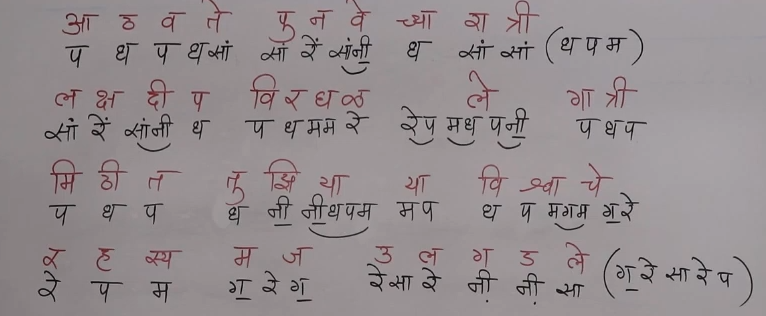 आ ठ व ते पु न वे च्या रा त्री
प ध प धसां सां रें सांनी॒ ध सां सां (ध प म)
ल क्ष दी प वि र घ ळ ले गा त्री
सां रें सांनी॒ ध प ध मम रे रेप मध पनी॒ प ध प
मि ठी त तु झि या या वि श्वा चे
प ध प ध नी॒ नी॒धपम मप ध प मग॒म ग॒ रे
र ह स्य म ज उ ल ग ड ले
रे प म ग॒ रे ग॒ रेसा रे नी़॒ नी़॒ सा (ग॒ रे सा रे प)